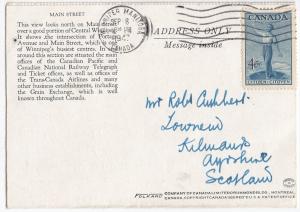 MAIN STREET
This view looks north on Main Street
over a good portion of Central Winnipeg.
It shows the intersection of Portage
Avenue and Main Street, which is one
of Winnipeg's busiest centres. In and
around this section are situated the main
offices of the Canadian Pacific and
Canadian National Railway Telegraph
and Ticket offices, as well as offices of
the Trans-Canada Airlines and many
other business establishments, including
the Grain Exchange, which is well
known throughout Canada.
WINNIPEG MANITOBA
SEP 8
CANADA
ADDRESS ONLY
Message Inside
CANADA
4c
CITIZEN CITOYEN
Mr Robt Cuthbert
Kilmaurs
Ayrshire
Scotland
FOLKARD COMPANY OF CANADA LIMITED MONTREAL